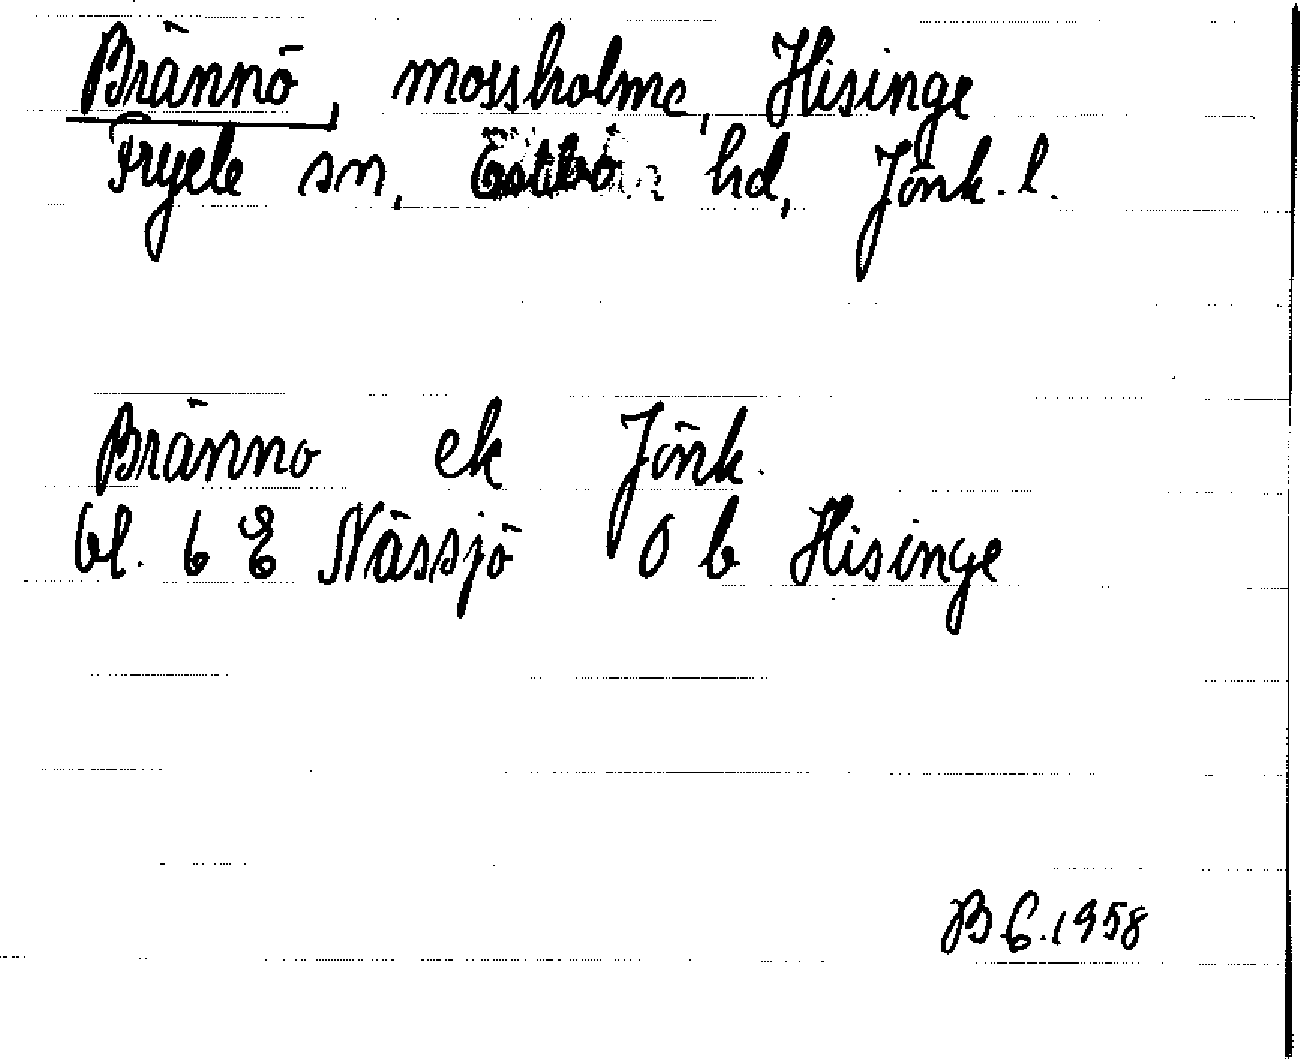 Brännö, mossholme, Hisinge
Fryele sn, Östbo hd, Jönk. l.
Brännö ek Jönk.
bl. 6 E Nässjö O b Hisinge
B.G. 1958